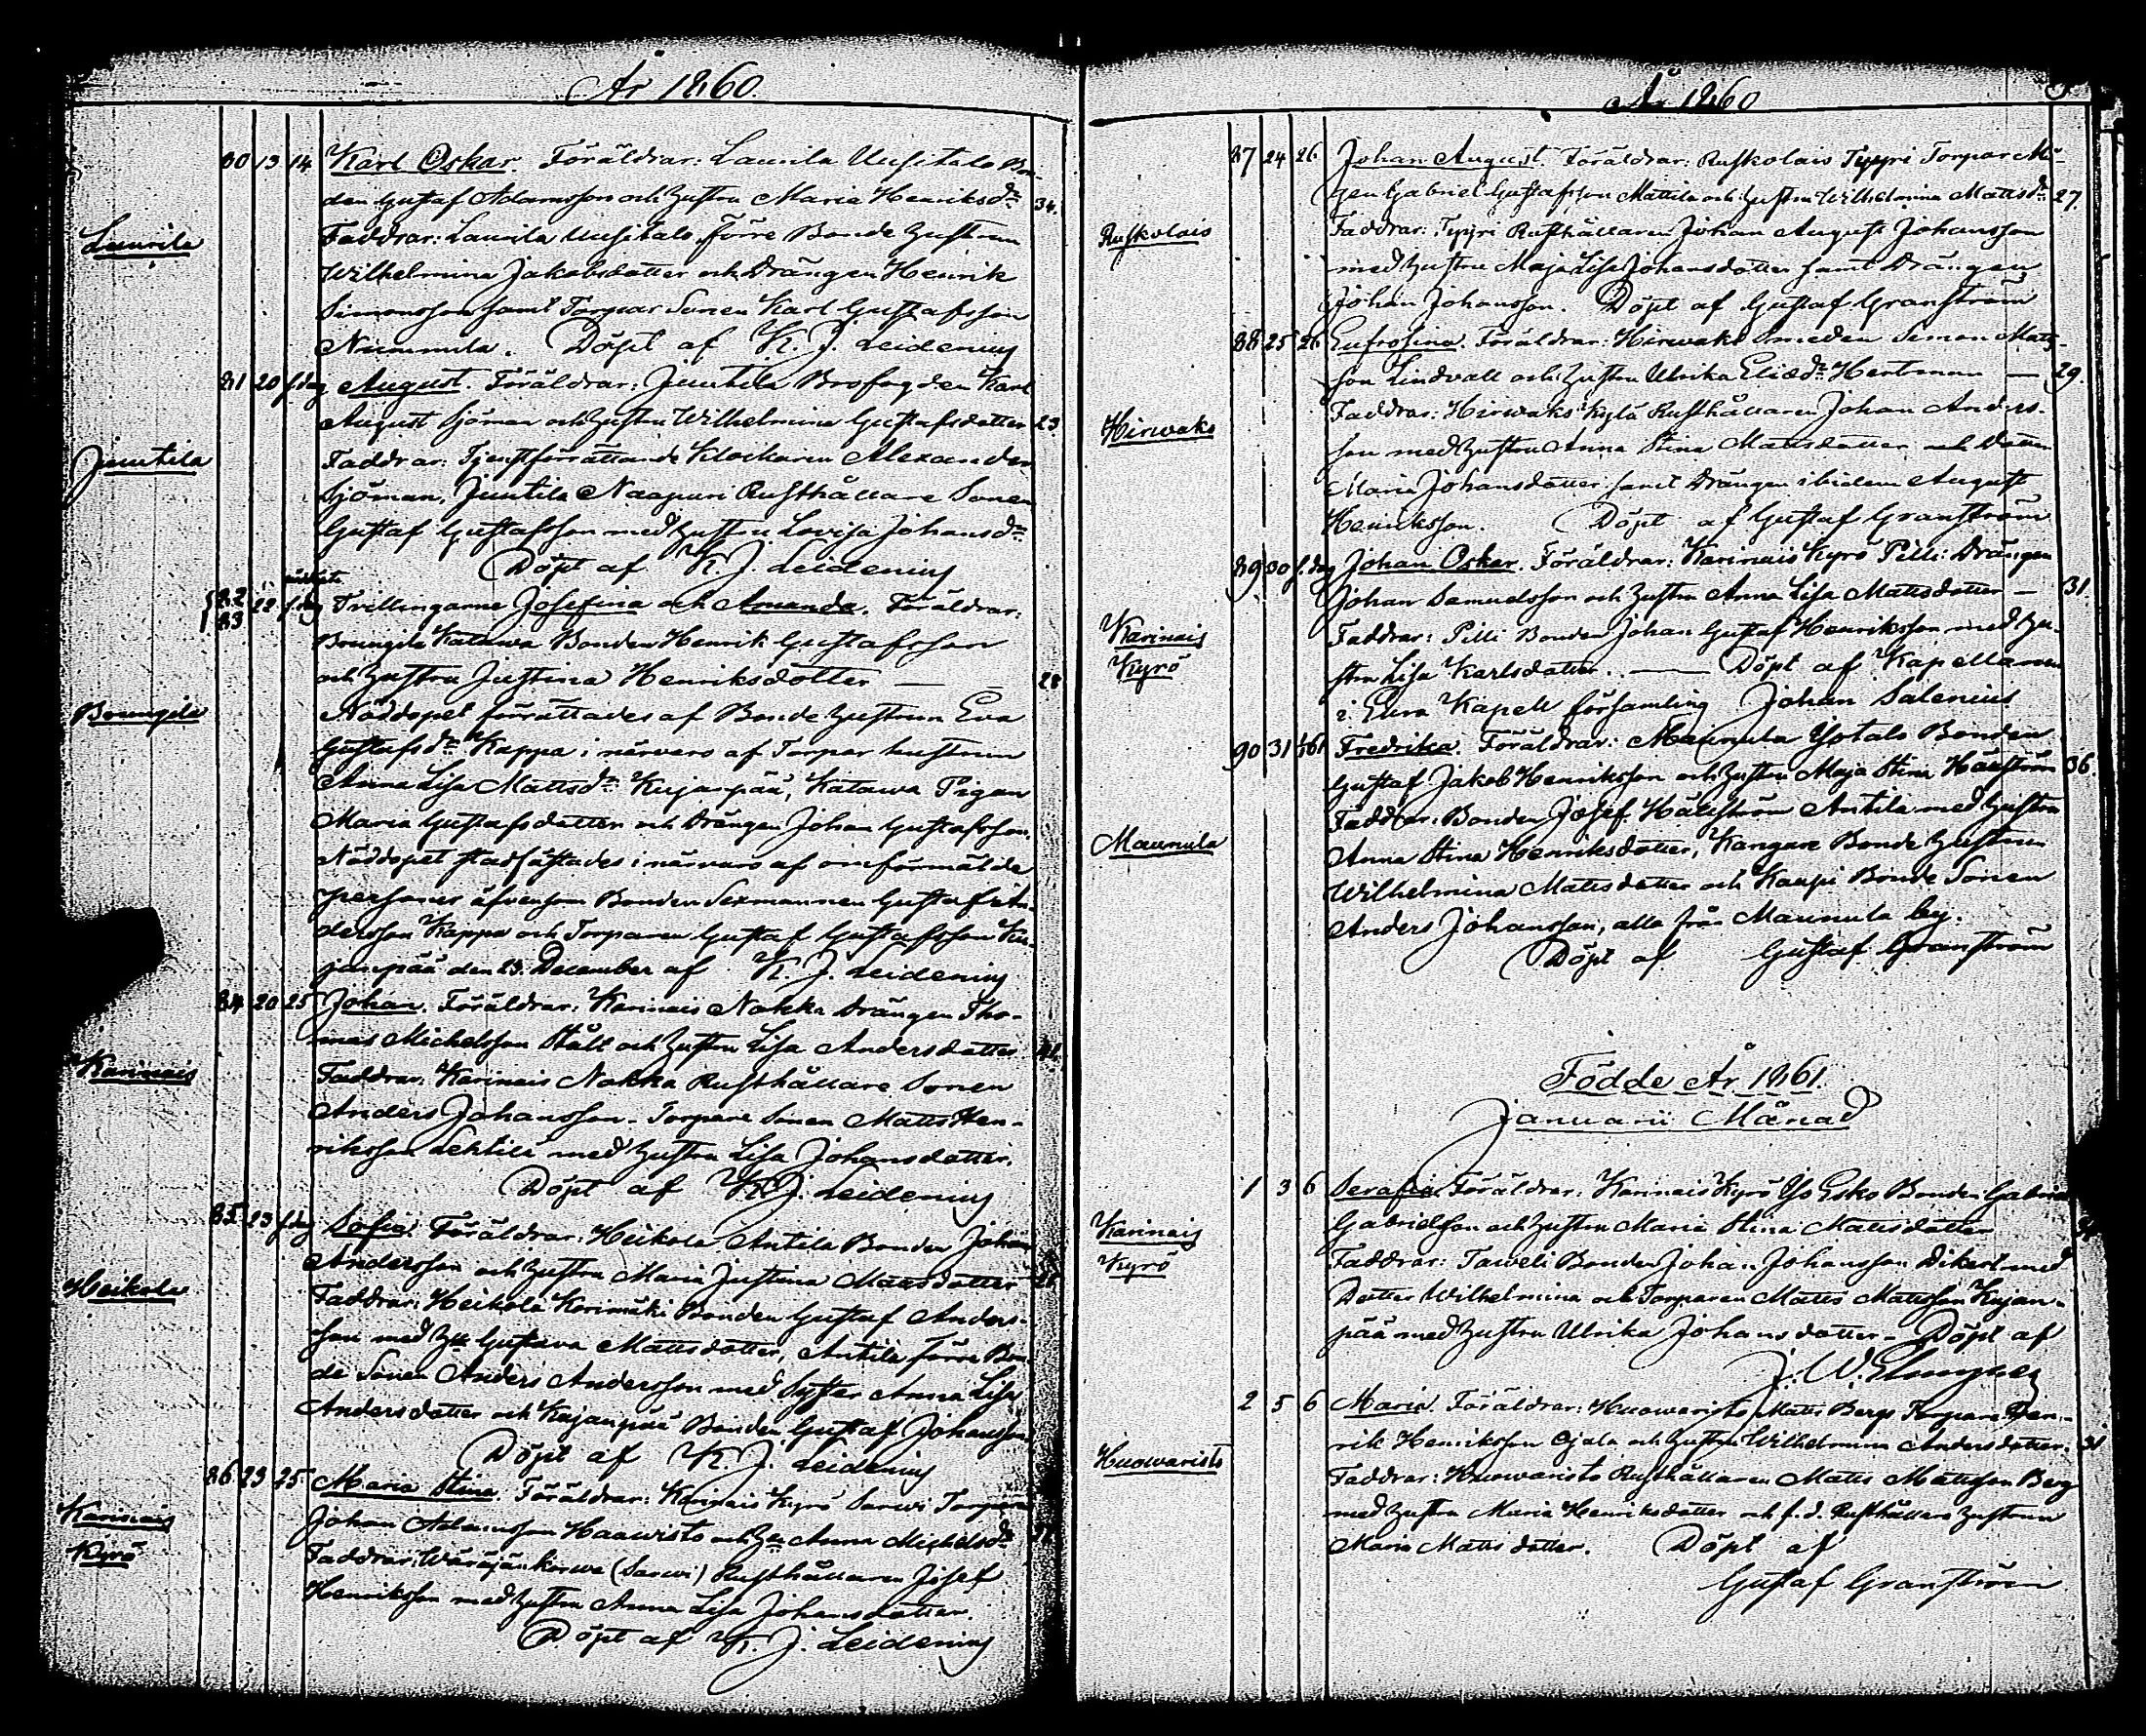 År 1860
Laurila
80 13 14 Karl Oskar. Föräldrar: Laurila Uusitalo Bon-
den Gustaf Adamsson och hustru Maria Henriksdr 34.
Faddrar: Laurila Uusitalo förre Bonde hustrun
Wilhelmina Jakobsdotter och Drängen Henrik
Simonsson samt Torpar Sonen Karl Gustafsson
Nummila. Döpt af K. J. Leidenius
Juntila
81 20 s. dag August. Föräldrar: Juntila Brofogden Karl
August Sjöman och hustru Wilhelmina Gustafsdotter 23.
Faddrar: Tjenstförrättande Klockaren Alexander
Sjöman, Juntila Naapuri Rusthållare Sonen
Gustaf Gustafsson med hustru Lovisa Johansdr
Döpt af K. J. Leidenius
82 83 22 s. dag Trillingarne Josefina och Amanda. Föräldrar:
Katawa Bonden Henrik Gustafsson
och hustru Justina Henriksdotter — — 28
Nöddopet förrättades af Bonde hustrun Eva
Gustafsdr Kappa i närvaro af Torpar hustrun
Anna Lisa Mattsdr Kujanpää, Katawa Pigan
Maria Gustafsdotter och Drängen Johan Gustafsson.
Nöddopet stadfästades i närvaro af omförmälde
personer äfvensom Bonden Sexmannen Gustaf An-
dersson Kappa och Torparen Gustaf Gustafsson Ku-
janpää den 23. December af K. J. Leidenius
Karinais
84 20 25 Johan. Föräldrar: Karinais Nokka Drängen Tho-
mas Michelsson Stålt och hustru Lisa Andersdotter
Faddrar: Karinais Nokka Rusthållare Sonen
Anders Johansson. Torpare Sonen Matts Hen-
riksson Lehtilä med hustru Lisa Johansdotter.
Döpt af K. J. Leidenius
Heikola
85 23 s. dag Sofia. Föräldrar: Heikola Antila Bonden Johan
Andersson och hustru Maria Justina Mattsdotter
Faddrar: Heikola Korimäki Bonden Gustaf Anders-
son med hu Gustava Mattsdotter, Antila förre Bon-
de Sonen Anders Andersson med Syster Anna Lisa
Andersdotter och Kujanpää Bonden Gustaf Johansson.
Döpt af K. J. Leidenius
Karinais
Kyrö
86 23 25 Maria Stina. Föräldrar: Karinais Kyrö Sarwi Torparen
Johan Adamsson Haawisto och hu Anna Michelsdr
Faddrar: Wäräjänkorwa (Sarwi) Rusthållaren Josef
Henriksson med hustru Anna Lisa Johansdotter.
Döpt af K. J. Leidenius
År 1860
Ruskolais
87 24 26 Johan August. Föräldrar: Ruskolais Tyyri Torpar Må-
gen Gabriel Gustafsson Mattila och hustru Wilhelmina Mattsdr 27.
Faddrar: Tyyri Rusthållaren Johan August Johansson
med hustru Maja Lisa Johansdotter samt Drängen
Johan Johansson. Döpt af Gustaf Granström
Hirwaks
88 25 26 Eufrosina. Föräldrar: Hirwaks Smeden Simon Matts-
son Lindvall och hustru Ulrika Eliædr Hertman — 29.
Faddrar: Hirwaks Kylä Rusthållaren Johan Anders-
son med hustru Anna Stina Mattsdotter och
Maria Johansdotter samt Drängen ibidem August
Henriksson. Döpt af Gustaf Granström
Karinais
Kyrö
89 30 s. dag Johan Oskar. Föräldrar: Karinais Kyrö Pilli Drängen
Johan Samuelsson och hustru Anna Lisa Mattsdotter — 31.
Faddrar: Pilli Bonden Johan Gustaf Henriksson med hu-
stru Lisa Karlsdotter. — Döpt af Kapellanen
i Eura Kapell församling Johan Salenius
Maunula
90 31 1/1 61 Fredrika. Föräldrar: Maunula Ylotalo Bonden
Gustaf Jakob Henriksson och hustru Maja Stina Hällström 36.
Faddrar: Bonden Josef Hällström Antila med hustru
Anna Stina Henriksdotter, Kangare Bonde hustrun
Wilhelmina Mattsdotter och Kaupi Bonde Sonen
Anders Johansson, alla från Maunula by.
Döpt af Gustaf Granström
Födde År 1861.
Januarii Månad
Karinais
Kyrö
1 3 6 Serafia. Föräldrar: Karinais Kyrö Iso Esko Bonden Gabriel
Gabrielsson och hustru Maria Stina Mattsdotter
Faddrar: Taweli Bonden Johan Johansson Dikert med
Dotter Wilhelmina och Torparen Matts Mattsson Kujan-
pää med hustru Ulrika Johansdotter – Döpt af
Huowaristo
2 5 6 Maria. Föräldrar: Huowaristo Matts Bergs Torpare Hen-
rik Henriksson Ojala och hustru Wilhelmina Andersdotter. 31
Faddrar: Huowaristo Rusthållaren Matts Mattsson Berg
med hustru Maria Henriksdotter och f. d. Rusthållare hustrun
Maria Mattsdotter. Döpt af
Gustaf Granström